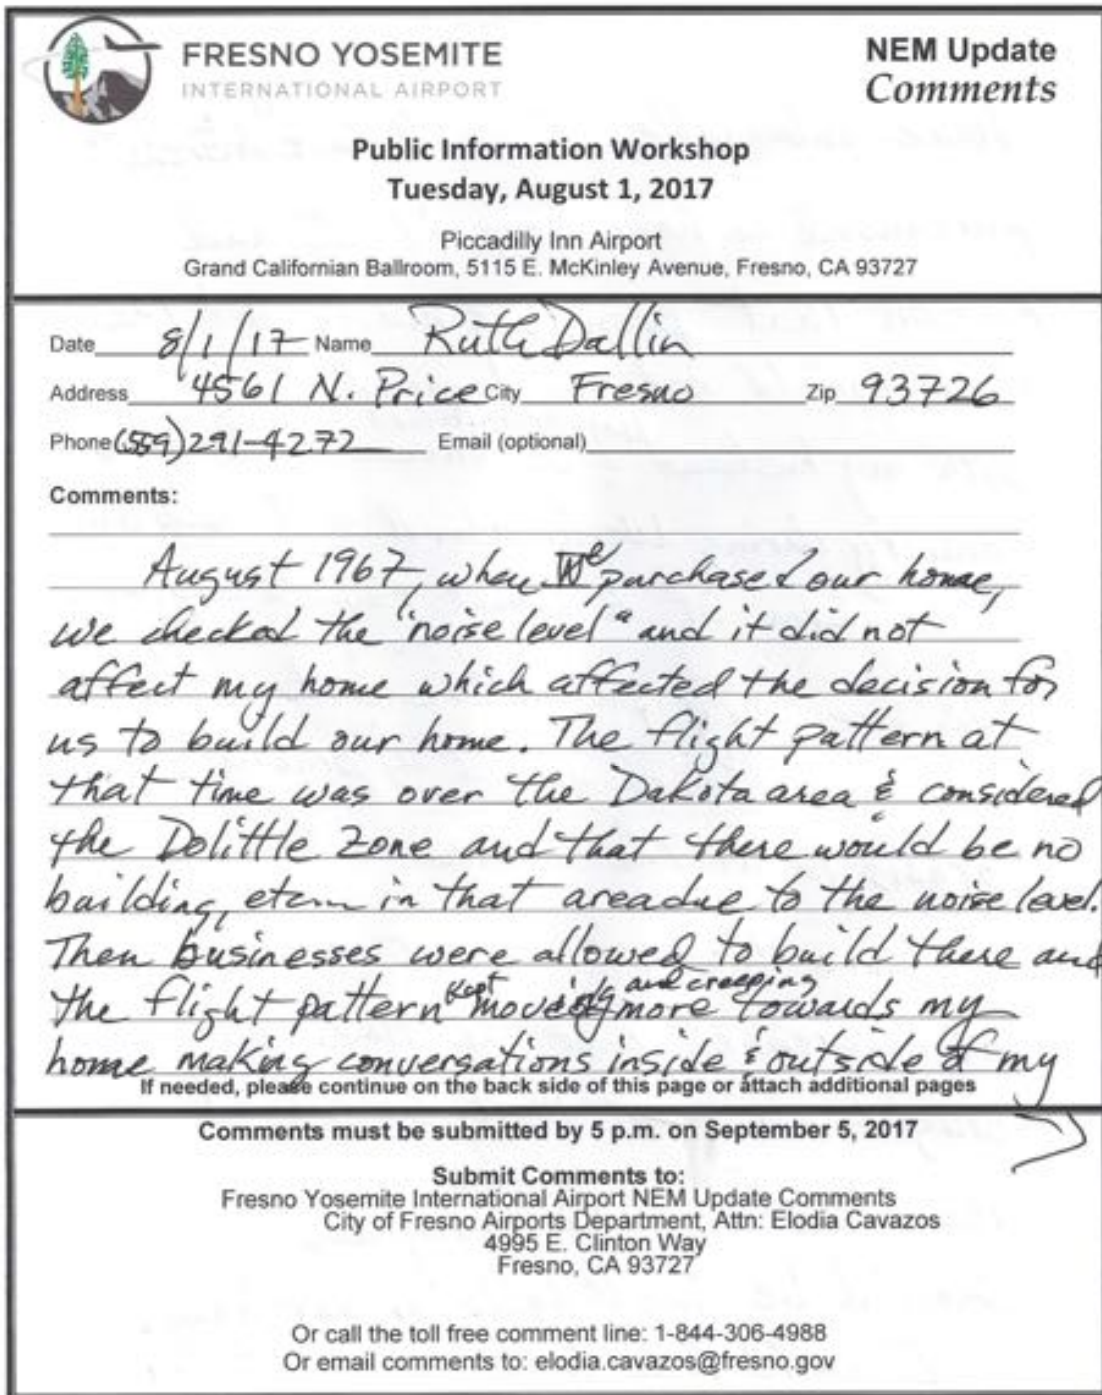 FRESNO YOSEMITE
INTERNATIONAL AIRPORT
NEM Update
Comments
Public Information Workshop
Tuesday, August 1, 2017
Piccadilly Inn Airport
Grand Californian Ballroom, 5115 E. McKinley Avenue, Fresno, CA 93727
Date 8/1/17 Name Ruth Dallin
Address 4561 N. Price City Fresno Zip 93726
Phone (559) 291-4272 Email (optional)
Comments:
August 1967, when We purchased our home,
we checked the "noise level" and it did not
affect my home which affected the decision for
us to build our home. The flight pattern at
that time was over the Dakota area & considered
the Dolittle Zone and that there would be no
building, etc. in that area due to the noise level.
Then businesses were allowed to build there and
the flight pattern kept moving and creeping more towards my
home making conversations inside & outside of my
If needed, please continue on the back side of this page or attach additional pages
Comments must be submitted by 5 p.m. on September 5, 2017
Submit Comments to:
Fresno Yosemite International Airport NEM Update Comments
City of Fresno Airports Department, Attn: Elodia Cavazos
4995 E. Clinton Way
Fresno, CA 93727
Or call the toll free comment line: 1-844-306-4988
Or email comments to: elodia.cavazos@fresno.gov